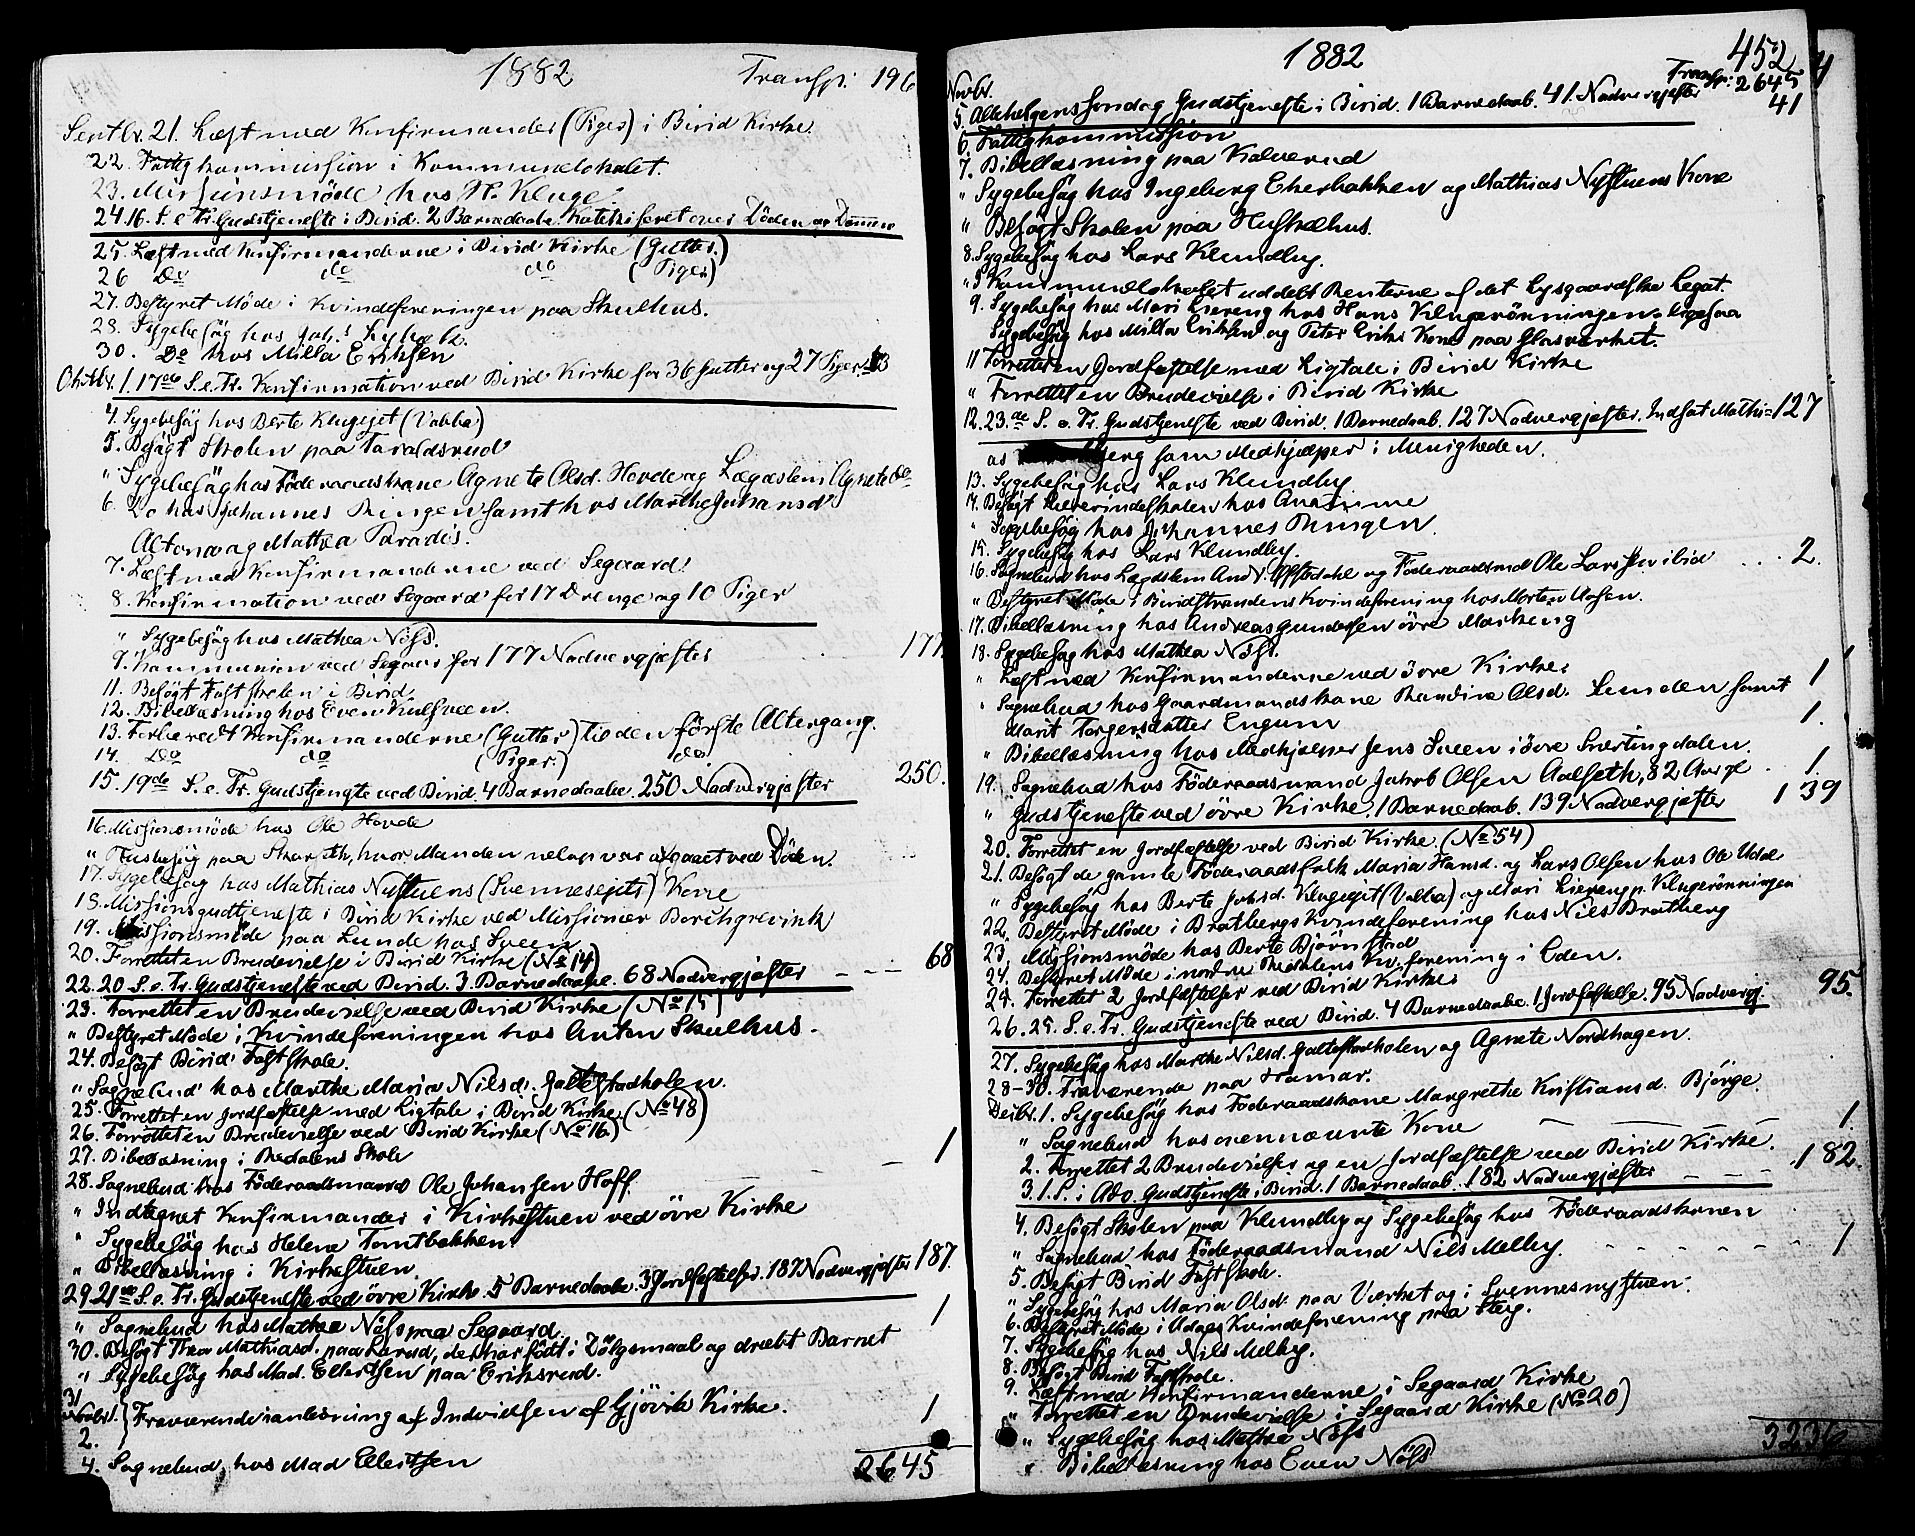 1882 Transp: 196
Septbr. 21. Læst med Konfirmander (Piger) i Birid Kirke.
22. Fattigkommission i Kommunelokalet.
23. Missionsmöde hos H. Kluge.
24. 16. S. e Tr. Gudstjeneste i Birid. 2 Barnedaabe. Katekiseret over Döden og Dommen
25. Læst med Konfirmanderne i Birid Kirke (Gutter.)
26 Do do do (Piger)
27. Bestyret Möde i Kvindeforeningen paa Skulhus.
28. Sygebesög hos Joh.s
30. Do hos Milla Eriksen
Oktbr. 1. 17de S. e. Tr. Konfirmation ved Birid Kirke for 36 Gutter og 27 Piger. 63
4. Sygebesög hos Berte Klugejet (Vabba)
5. Besögt Skolen paa Taraldsrud
" Sygebesög hos Föderaadskone Agnete Olsd. Hovde og Lægdslem Agnete
6. Do hos Johannes Ringen samt hos Marthe Johansd
Altona og Mathea Paradis.
7. Læst med Konfirmanderne ved Segaard.
8. Konfirmation ved Segaard for 17 Drenge og 10 Piger
" Sygebesög hos Mathea Nöss.
9. Kommunion ved Segaard for 177 Nadvergjæster 177.
11. Besögt Fastskolen i Birid.
12. Bibellæsning hos Even Kulsveen.
13. Forberedt Konfirmanderne (Gutter) til den förste Altergang.
14. Do do (Piger.) do.
15. 19de S. e. Tr. Gudstjeneste ved Birid. 4 Barnedaabe. 250 Nadvergjæster 250.
16. Missionsmöde hos Ole Hovde
" Husbesög paa Skarseth, hvor Manden nelop var afgaaet ved Döden.
17. Sygebesög hos Mathias Nystuens (Svennesejets) Kone
18. Missionsgudtjeneste i Birid Kirke ved Missionær Borchgrevink
19. Missionsmöde paa Lunde hos Sveen
20. Forrettet en Brudevielse i Birid Kirke (No 14)
22. 20 S. e. Tr. Gudstjeneste ved Birid. 3. Barnedaabe. 68 Nadvergjæster - - - 68
23. Forrettet en Brudevielse ved Birid Kirke (No 15)
" Bestyret Möde i Kvindeforeningen hos Anton Skulhus.
24. Besögt Birid Fastskole.
" Sognebud hos Marthe Maria Nilsd. Galtestadholen.
25. Forrettet en Jordfæstelse med Ligtale i Birid Kirke (No 48)
26. Forrettet en Brudevielse ved Birid Kirke (No 16)
27. Bibellæsning i Redalens Skole
28. Sognebud hos Föderaadsmand Ole Johansen Hoff. - - 1
" Indtegnet Konfirmander i Kirkestuen ved övre Kirke
" Sygebesög hos Helene Tomtbakken
" Bibellæsning i Kirkestuen.
29. 21de S. e. Tr. Gudstjeneste ved övre Kirke. 5 Barnedaabe. 3 Jordfæstelser. 187 Nadvergjæster 187.
" Sognebud hos Mathea Nöss paa Segaard. 1
30. Besögt Thea Mathiasd. paa Lerud, der har födt i Dölgsmaal og dræbt Barnet
" Sygebesög hos Mad. Ellertsen paa Eriksrud.
31
Novbr. } Fraværende i anledning af Indvielsen af Gjövik Kirke.
2.
4. Sognebud hos Mad Ellertsen 1
2645
1882 452
Novbr. Transp: 2645
5. Allehelgens Sondag Gudstjeneste i Birid. 1 Barnedaab. 41. Nadvergjester 41
6. Fattigkommission
7. Bibellæsning paa Kalverud
" Sygebesög hos Ingeborg Ekerbakken og Mathias Nystuens Kone
" Besögt Skolen paa Huskelhus.
8. Sygebesög hos Lars Klundby.
" I Kommunelokalet uddelt Renterne af det Lysgaardske Legat.
9. Sygebesög hos Mari Liereng hos Hans Klugerönningen. ligesaa
Sygebesög hos Milla Eriksen og Peter Eriks Kone paa Glasværket.
11 Forrettet en Jordfæstelse med Ligtale i Birid Kirke
" Forrettet en Brudevielse i Birid Kirke
12. 23de S. e. Tr. Gudstjeneste ved Birid. 1 Barnedaab. 127 Nadvergjæster. Indsat Mathi= 127
as berg som Medhjælper i Menigheden.
13. Sygebesög hos Lars Klundby
14. Besögt Lærerindeskolen hos Anasine
" Sygebesög hos Johannes Ringen.
15. Sygebesög hos Lars Klundby.
16. Sognebud hos Lægdslem Andr. Uffsdahl og Föderaadsmd Ole Larssen ibid . . 2.
" Bestyret Möde i Biridstrandens Kvindeforening hos Morten Mosen.
17. Bibellæsning hos Andreas Gundersen övre Markeng
18. Sygebesög hos Mathea Nöss.
" Læst med Konfirmanderne ved övre Kirke
" Sognebud hos Gaardmandskone Randine Olsd. Lunden samt 1
Marit Torgersdatter Engum 1.
" Bibellæsning hos Medhjælper Jens Sveen i övre Snertingdalen.
19. Sognebud hos Föderaadsmand Jakob Olsen Aalseth, 82 Aar gl . 1
" Gudstjeneste ved övre Kirke. 1 Barnedaab. 139 Nadvergjæster 139
20. Forrettet en Jordfæstelse ved Birid Kirke. (No 54)
21. Besögt de gamle Föderaadsfolk Maria Hansd. og Lars Olsen hos Ole Udal
" Sygebesög hos Berte Johsd. Klugejet (Vabba) og Mari Liereng p. Klugerönningen
22. Bestyret Möde i Bratbergs Kvindeforening hos Nils Bratberg
23. Missionsmöde hos Berte Björnstad
24. Bestyret Möde i nordre Redalens Kv.forening i Eden.
25. Forrettet 2 Jordfæstelser ved Birid Kirke
26. 25. S. e. Tr. Gudstjeneste ved Birid. 4 Barnedaabe. 1 Jordfæstelse. 95 Nadvergj. 95.
27. Sygebesög hos Marthe Nilsd. Galtestadholen og Agnete Nordhagen.
28-30. Fraværende paa Hamar.
Decbr. 1. Sygebesög hos Föderaadskone Margrethe Kristiansd. Bjørge.
" Sognebud hos ovennævnte Kone - - - 1.
2. Forrettet 2 Brudevielser og en Jordfæstelse ved Birid Kirke.
3. 1. S. i Adv. Gudstjeneste i Birid. 1 Barnedaab. 182 Nadvergjæster - - - 182.
4. Besögt Skolen paa Klundby og Sygebesög hos Föderaadskonen
" Sognebud hos Föderaadsmand Nils Melby. - - - - - - 1
5. Besögt Birid Fastskole.
" Sygebesög hos Maria Olsd. paa Værket og i Svennesnystuen.
6. Bestyret Möde i Kvindeforening paa Steg.
7. Sygebesög hos Nils Melby.
8. Besögt Birid Fastskole.
9. Læst med Konfirmanderne i Segaard Kirke
" Forrettet en Brudevielse i Segaard Kirke (No 20)
" Sygebesög hos Mathea Nöss
" Bibellæsning hos Even Nöss
3236